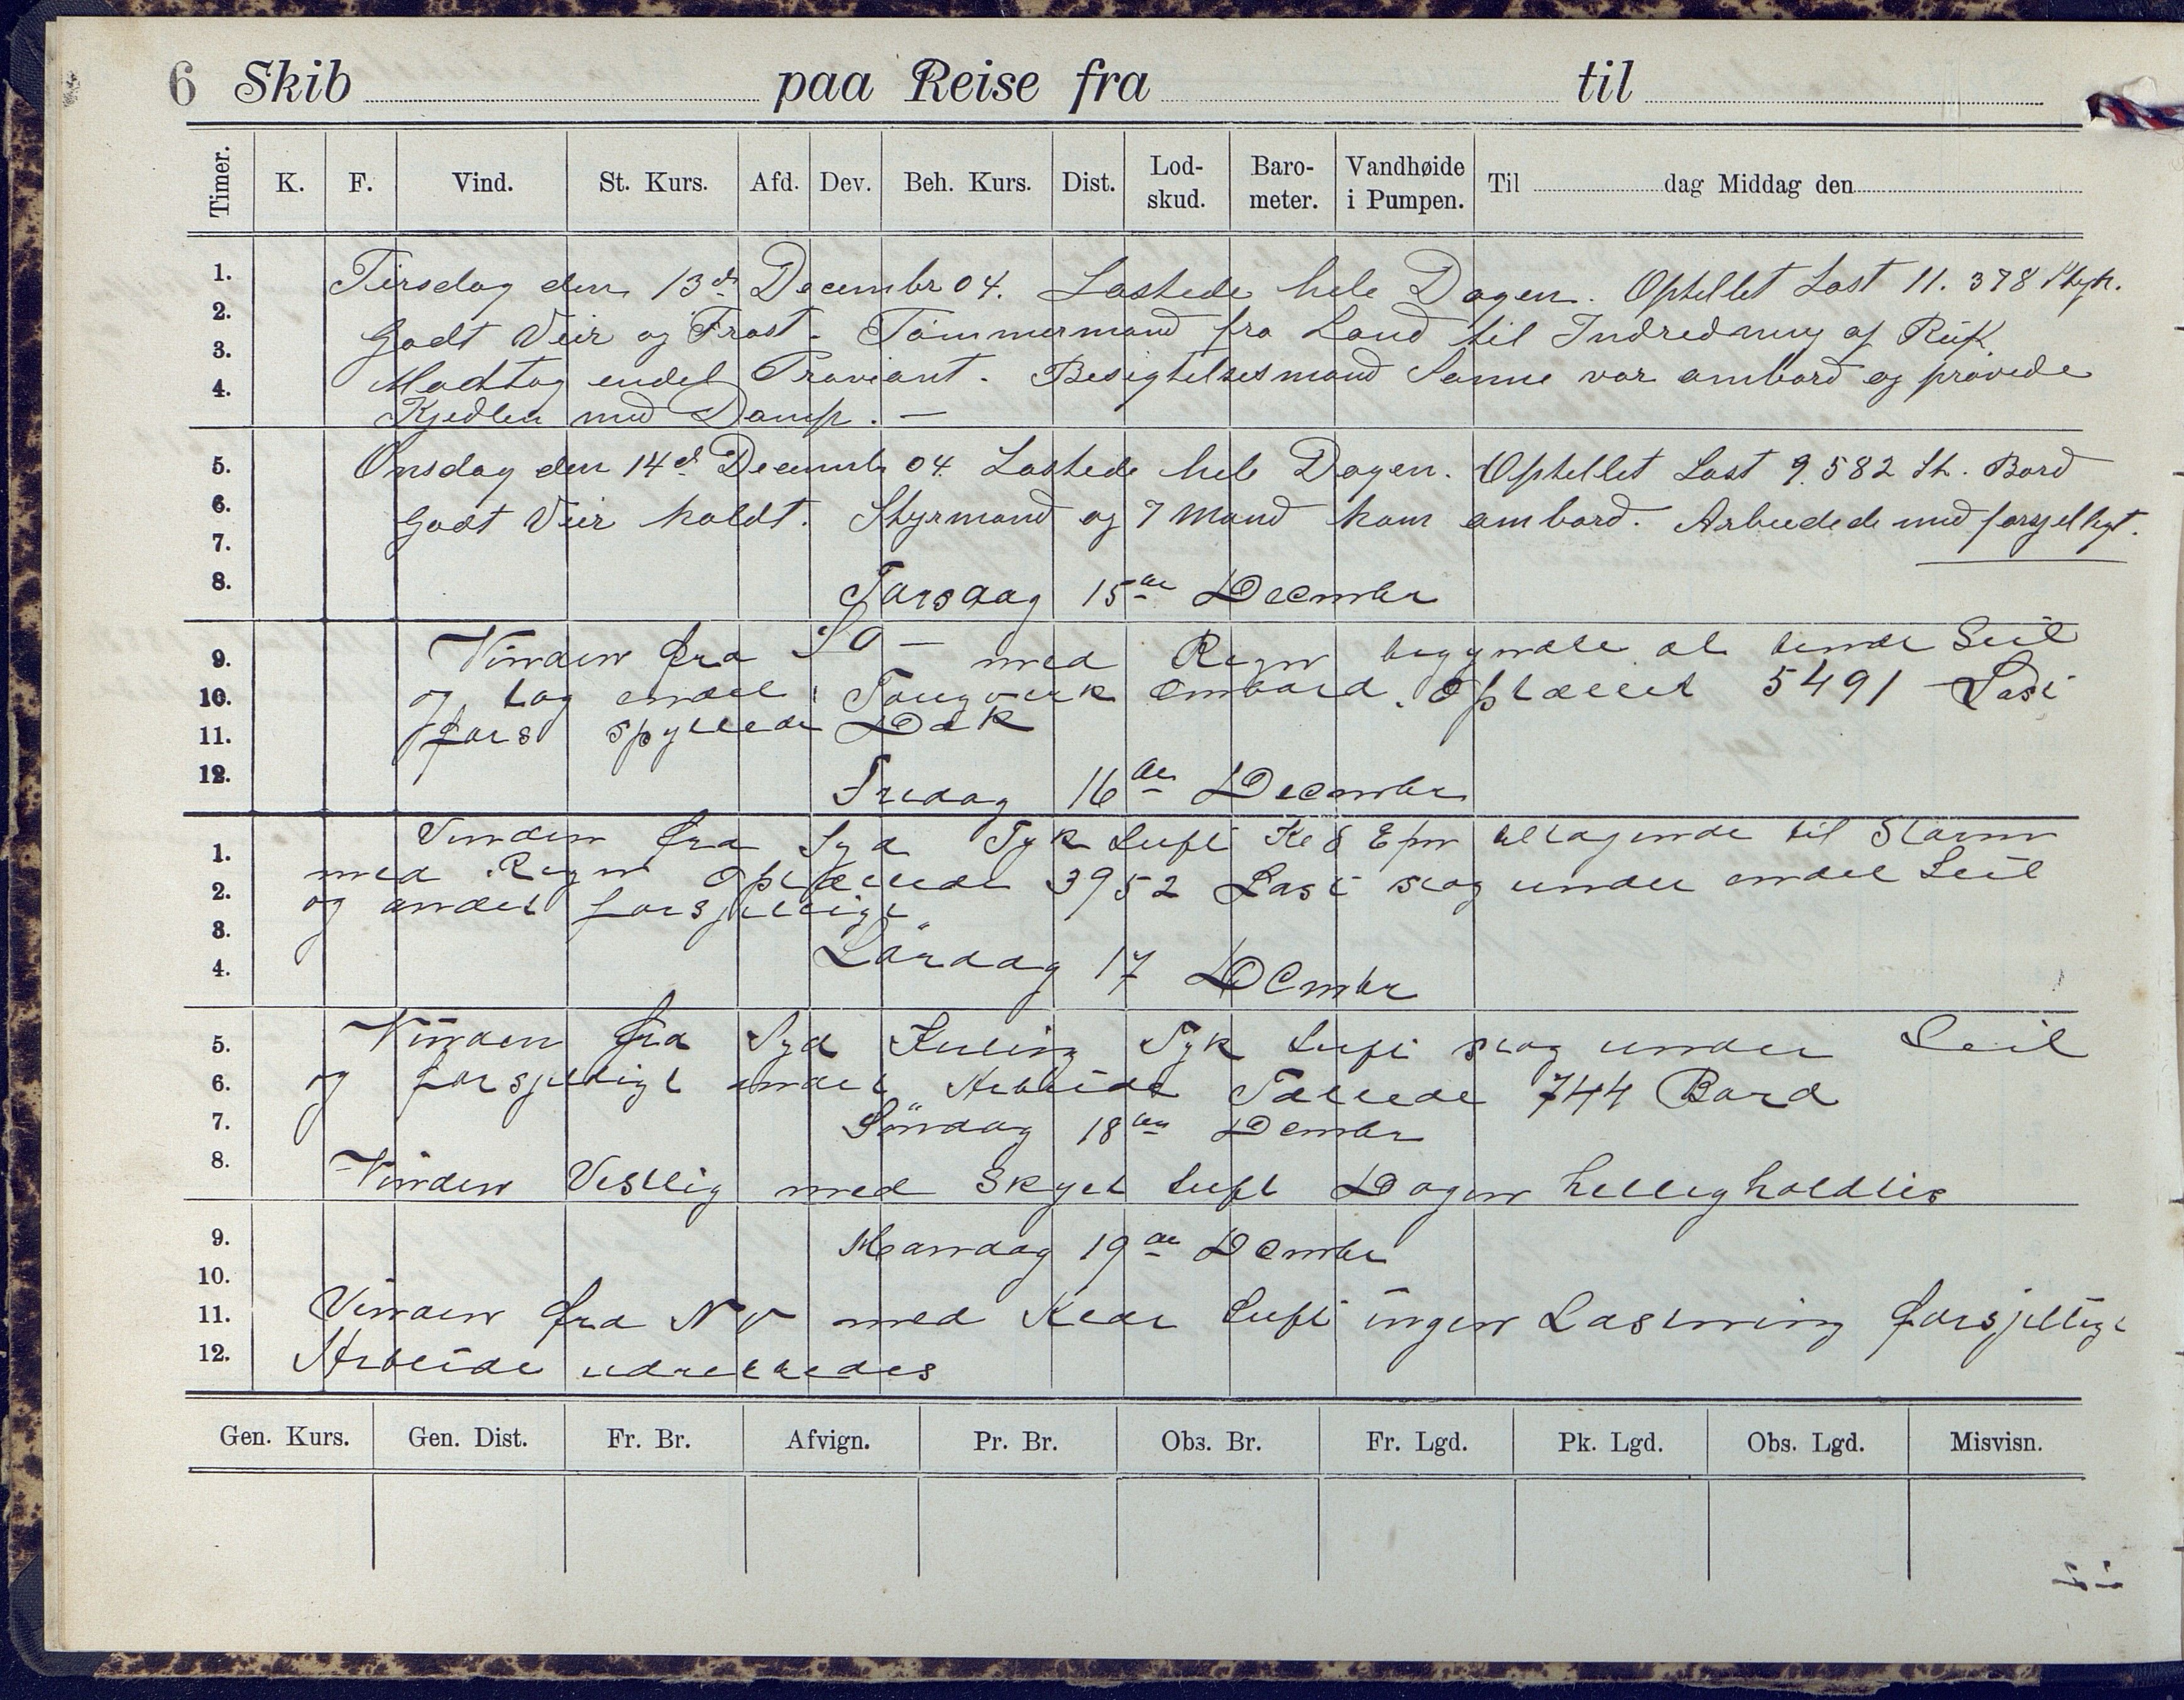 6 Skib paa Reise fra til
Timer. K. F. Vind. St. Kurs. Afd. Dev. Beh. Kurs. Dist. Lod-skud. Baro-meter. Vandhøide i Pumpen. Til dag Middag den
1.
2.
3.
4.
Tirsdag den 13d Decembr 04. Lastede hele Dagen. Optellet Last 11.378
Godt Veir og Frost. Tømmermand fra Land til Indredning af Ruf.
Modtog endel Proviant. Besigtelsesmand Sanne var ombord og prøvede
Kjedlen med Damp. —
5.
6.
7.
8.
Onsdag den 14d Decemb 04 Lastede hele Dagen. Optellet Last 9.582 St. Bord
Godt Veir koldt. Styrmand og 7 Mand kom ombord. Arbeidede med forsjelligt.
Torsdag 15de Decmber
9.
10.
11.
12.
Vinden fra SO – med Regn begyndte at bende Seil
og tog endel Tougverk ombord. Optællet 5491 Last
fors spyllede Dæk
Fredag 16de Decmber
1.
2.
3.
4.
Vinden fra Syd Tyk Luft Kl 8 Epm tiltagende til Storm
med Regn Optællede 3952 Last slog under endel Seil
og andet forsjelligt
Lördag 17 Dcmbr
5.
6.
7.
8.
Vinden fra Syd Kuling Tyk Luft slog under Seil
og forsjelligt andet Arbeide Tællede 744 Bord
Söndag 18de Dcmbr
Vinden Vestlig med Skyet Luft Dagen helligholdtes
9.
10.
11.
12.
Mandag 19de Dcmbr
Vinden fra NV med Klar Luft ingen Lastning forsjelligt
Arbeide udrettedes
Gen. Kurs. Gen. Dist. Fr. Br. Afvign. Pr. Br. Obs. Br. Fr. Lgd. Pk. Lgd. Obs. Lgd. Misvisn.